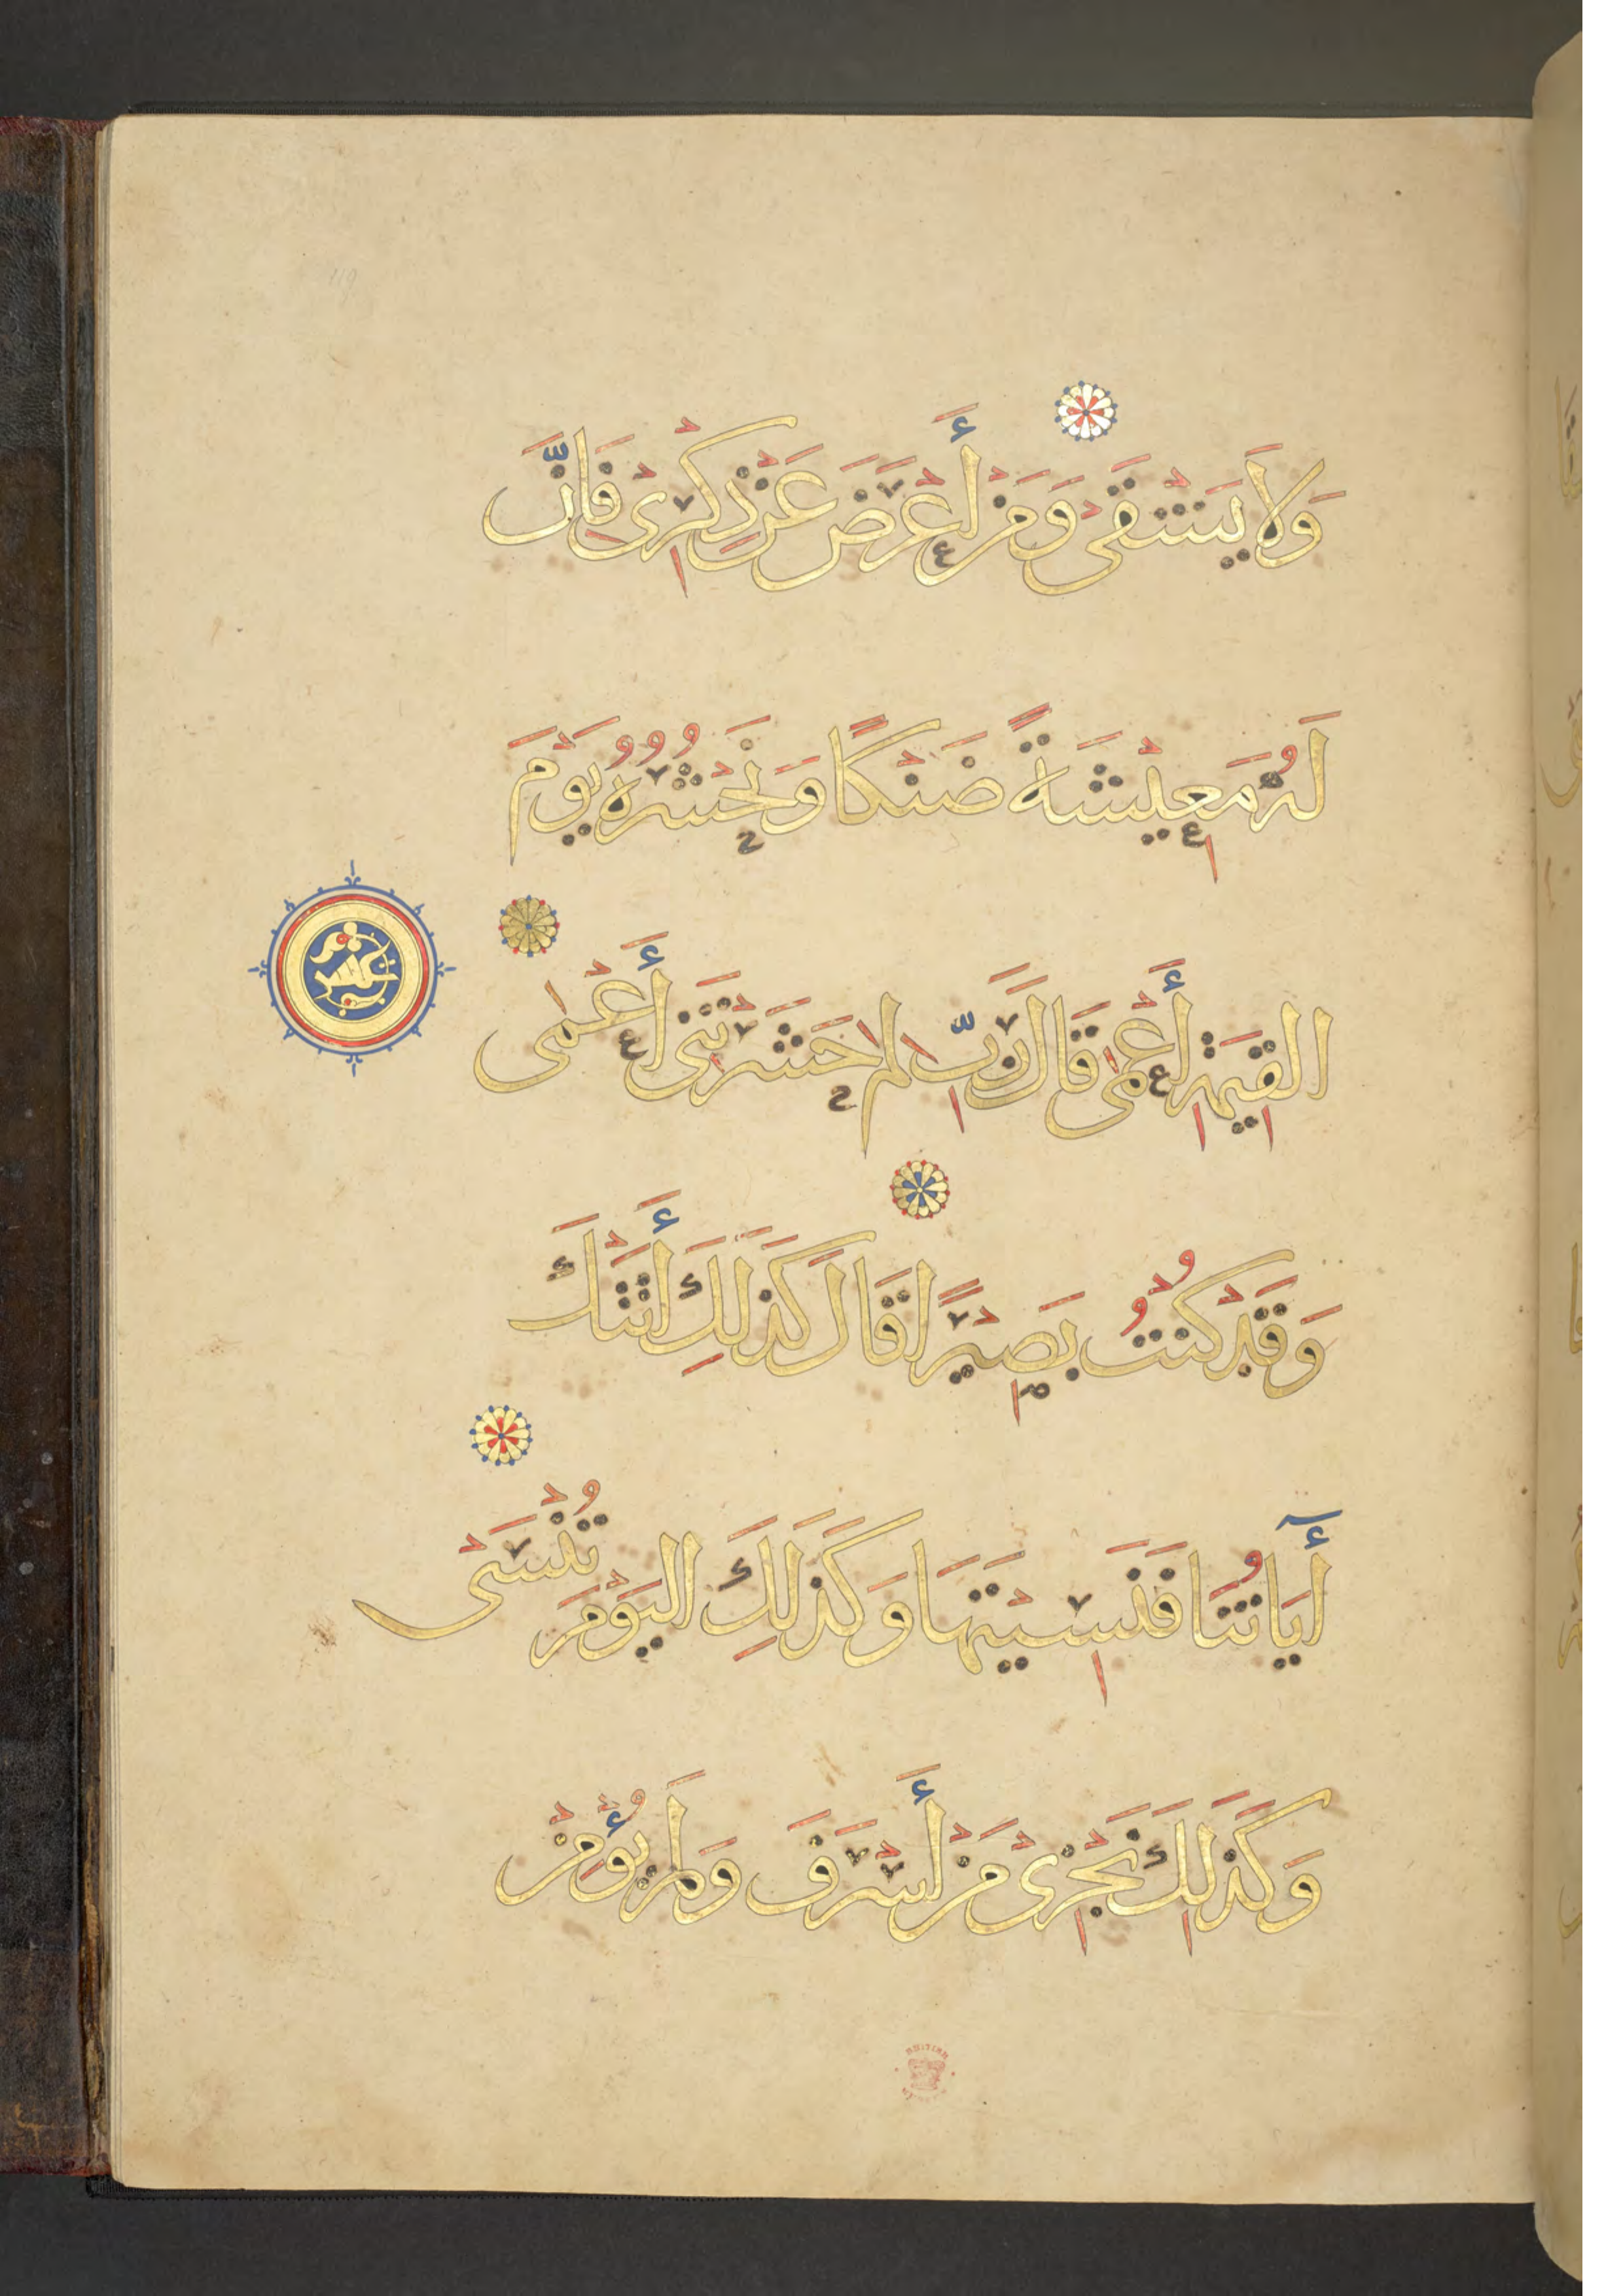 وَلَا يَشْقَىٰ وَمَنْ أَعْرَضَ عَنْ ذِكْرِى فَإِنَّ
لَهُ مَعِيْشَةً ضَنْكًا وَنَحْشُرُهُ يَوْمَ
الْقِيٰمَةِ أَعْمٰى قَالَ رَبِّ لِمَ حَشَرْتَنِى أَعْمٰى
وَقَدْ كُنْتُ بَصِيْرًا قَالَ كَذَلِكَ أَتَتْكَ
أٓيَاتُنَا فَنَسِيْتَهَا وَكَذَلِكَ الْيَوْمَ تُنْسَى
وَكَذَلِكَ نَجْزِىْ مَنْ أَسْرَفَ وَلَمْ يُؤْمِنْ